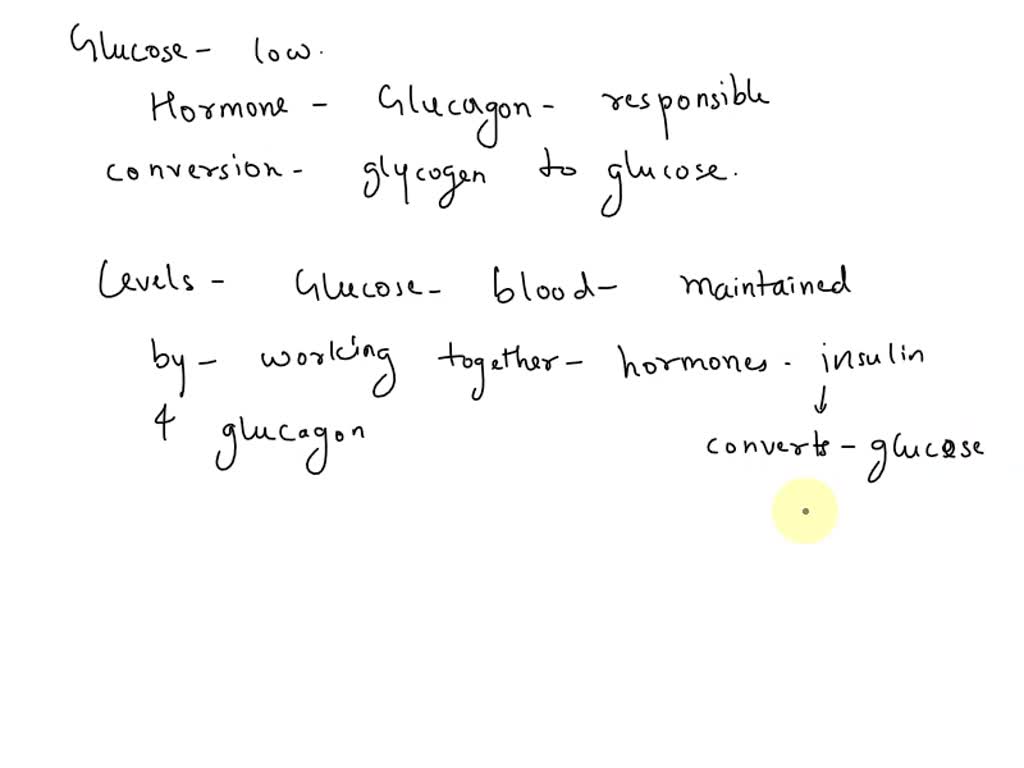 Glucose - low.
Hormone - Glucagon - responsible
conversion - glycogen to glucose.
Levels - Glucose - blood - maintained
by - working together - hormones. insulin
& glucagon
↓
converts - glucose